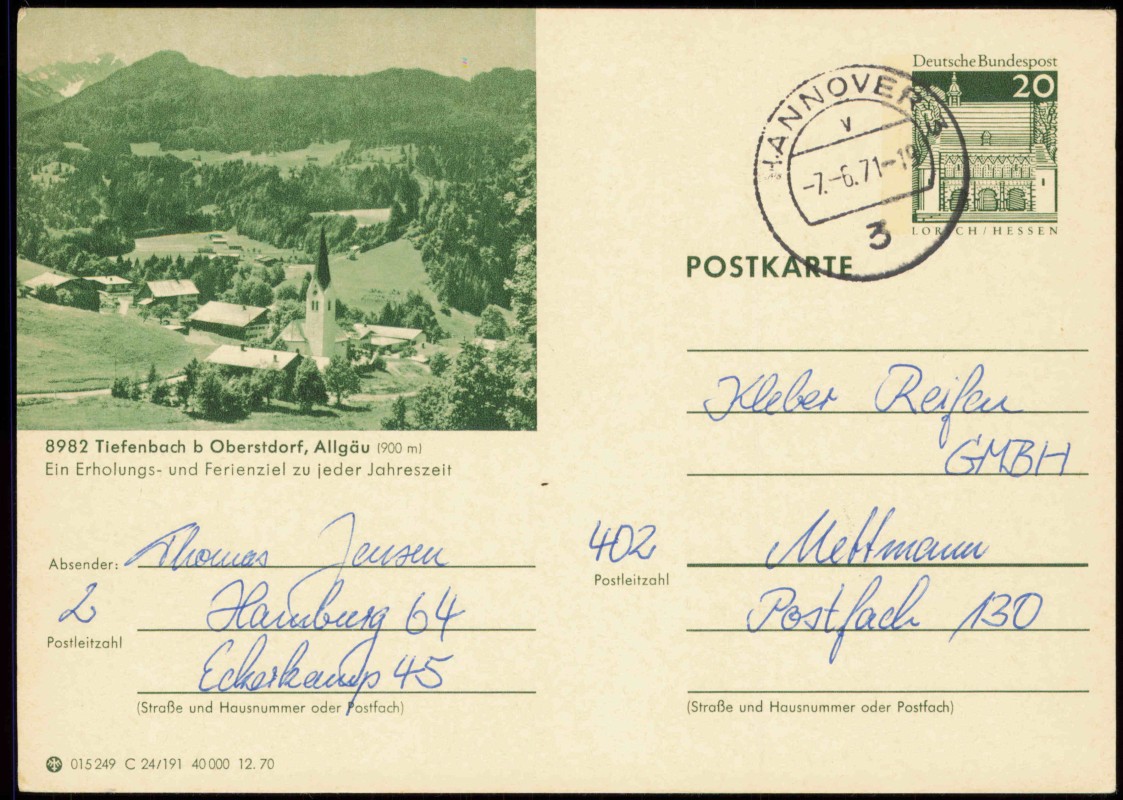 Deutsche Bundespost
20
LORSCH/HESSEN
HANNOVER 3
v
-7.-6.71-19
3
POSTKARTE
8982 Tiefenbach b Oberstdorf, Allgäu (900 m)
Ein Erholungs- und Ferienziel zu jeder Jahreszeit
Absender: Thomas Jensen
2 Hamburg 64
Postleitzahl
Eckerkamp 45
(Straße und Hausnummer oder Postfach)
Kleber Reifen
GMBH
402 Mettmann
Postleitzahl
Postfach 130
(Straße und Hausnummer oder Postfach)
015249 C 24/191 40000 12.70